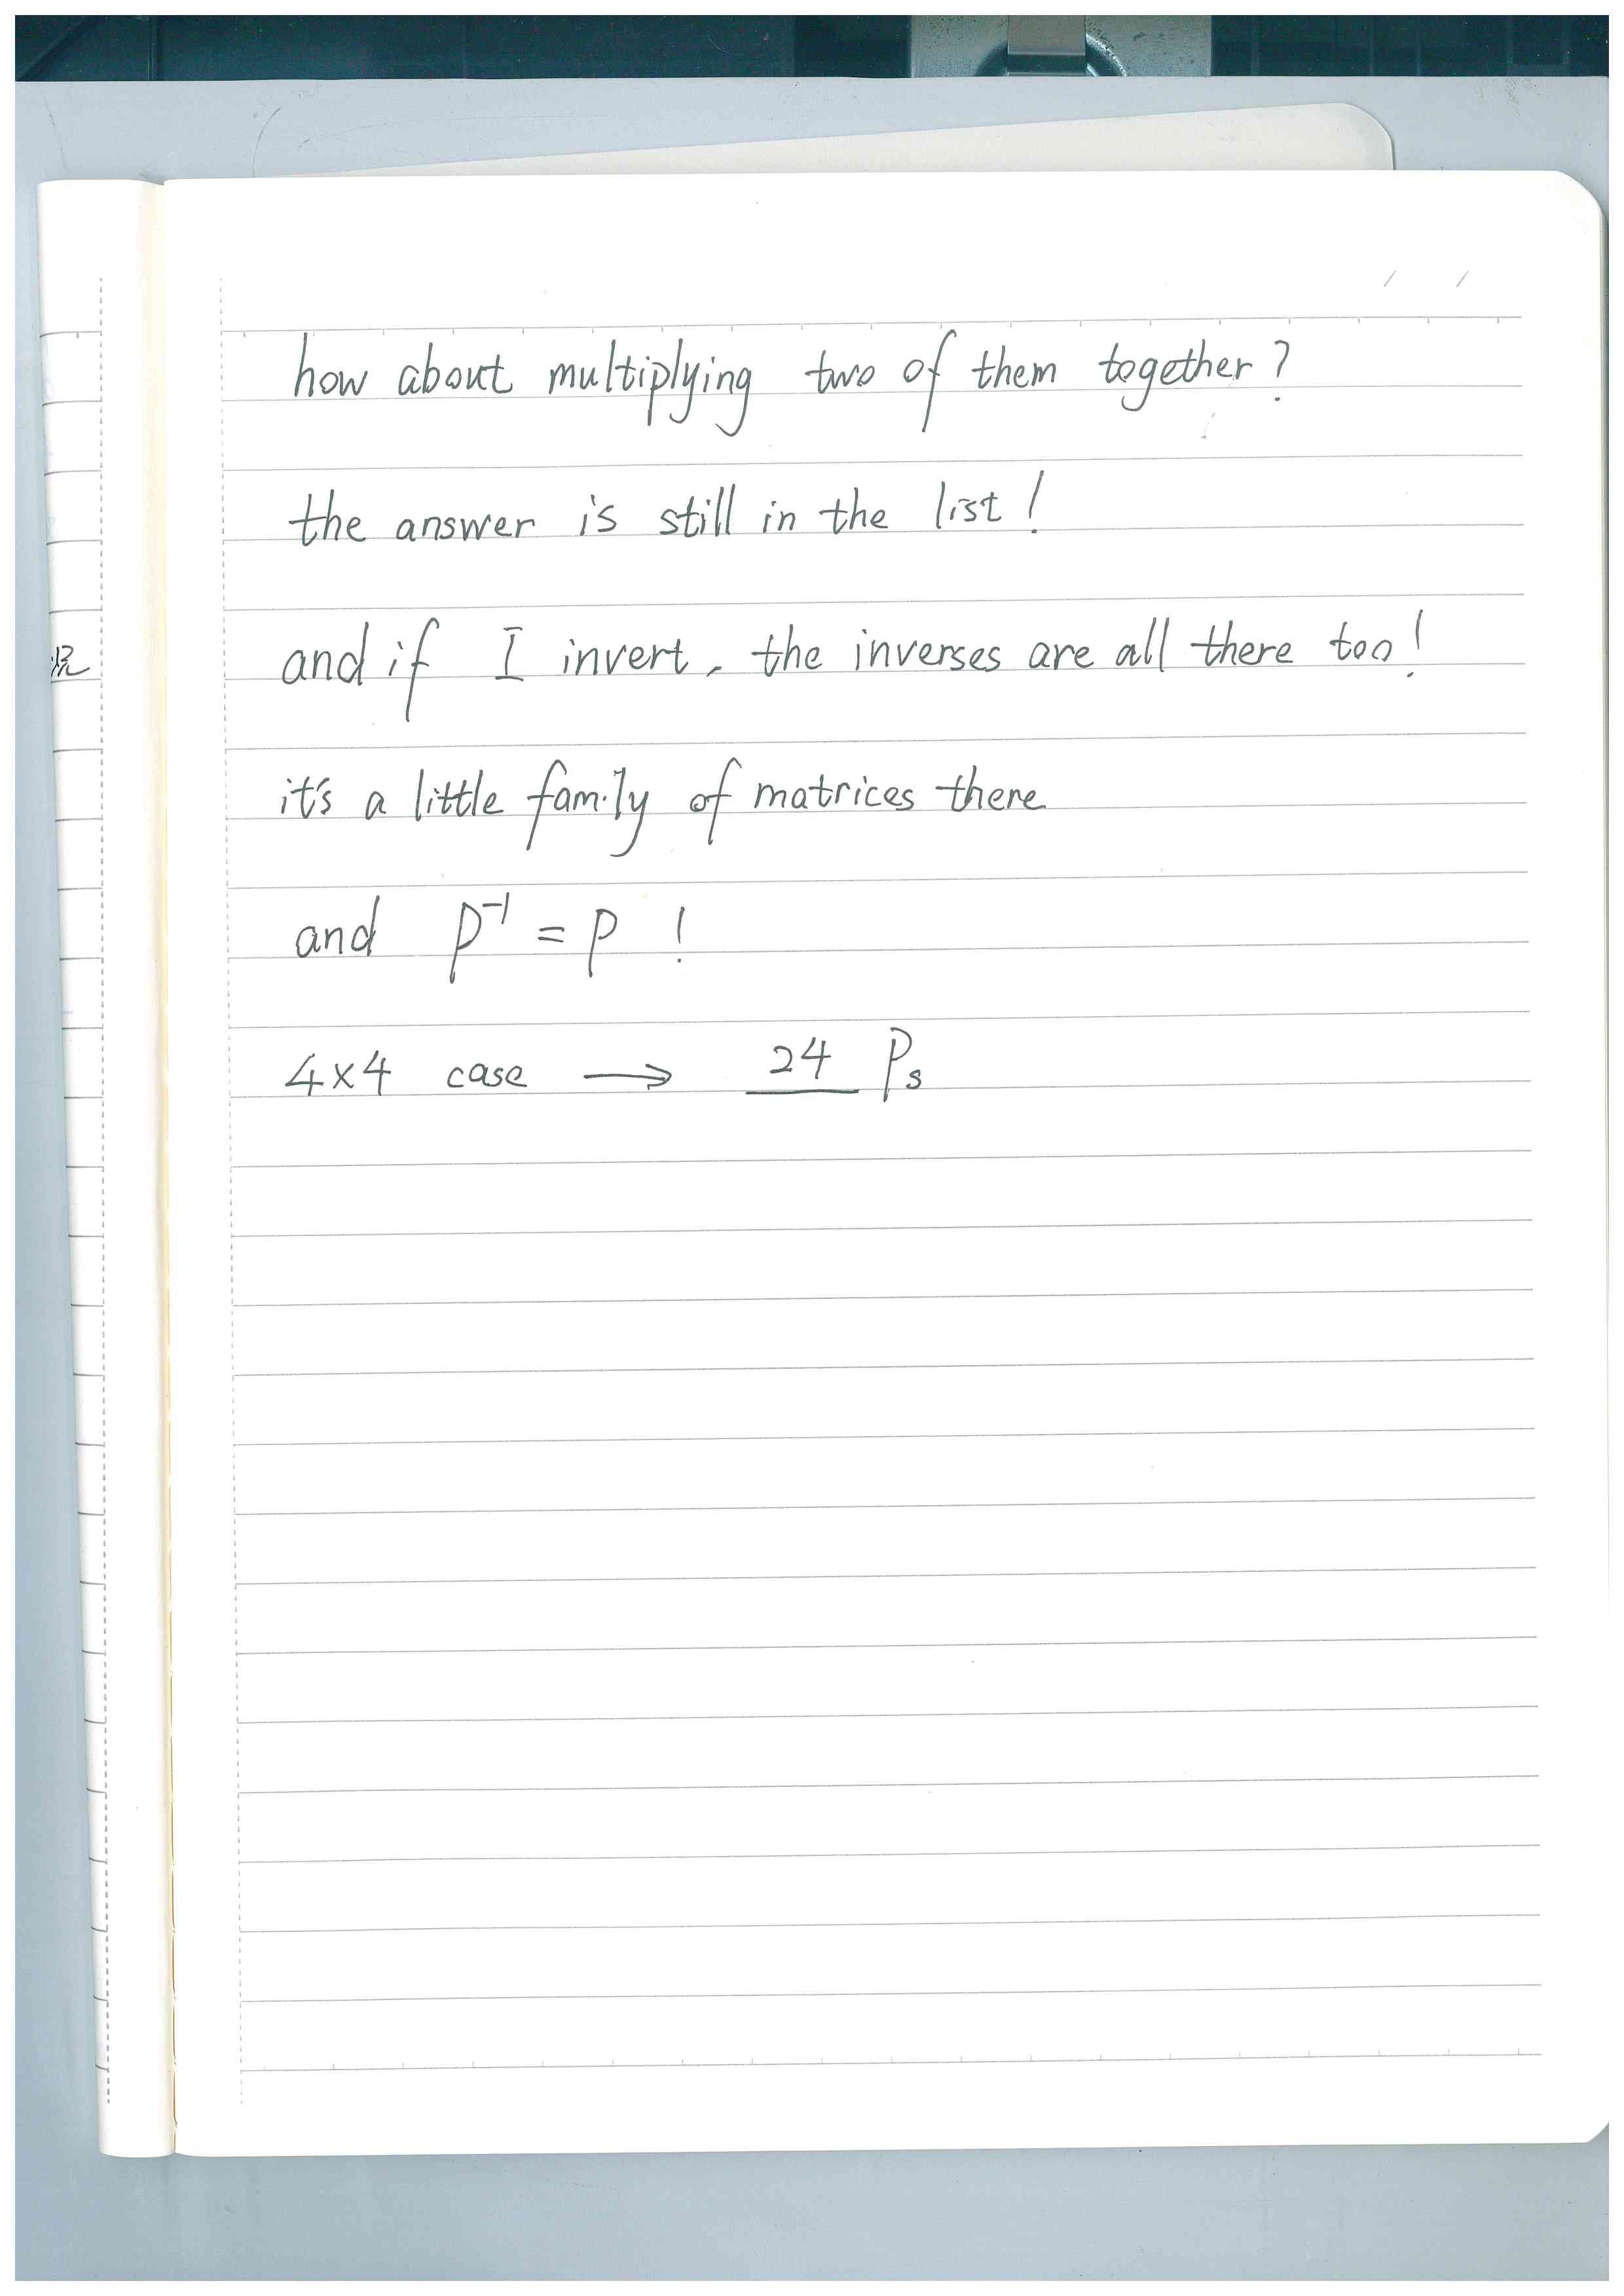 how about multiplying two of them together?
the answer is still in the list!
and if I invert, the inverses are all there too!
it's a little family of matrices there
and P⁻¹ = P !
4×4 case → 24 Ps